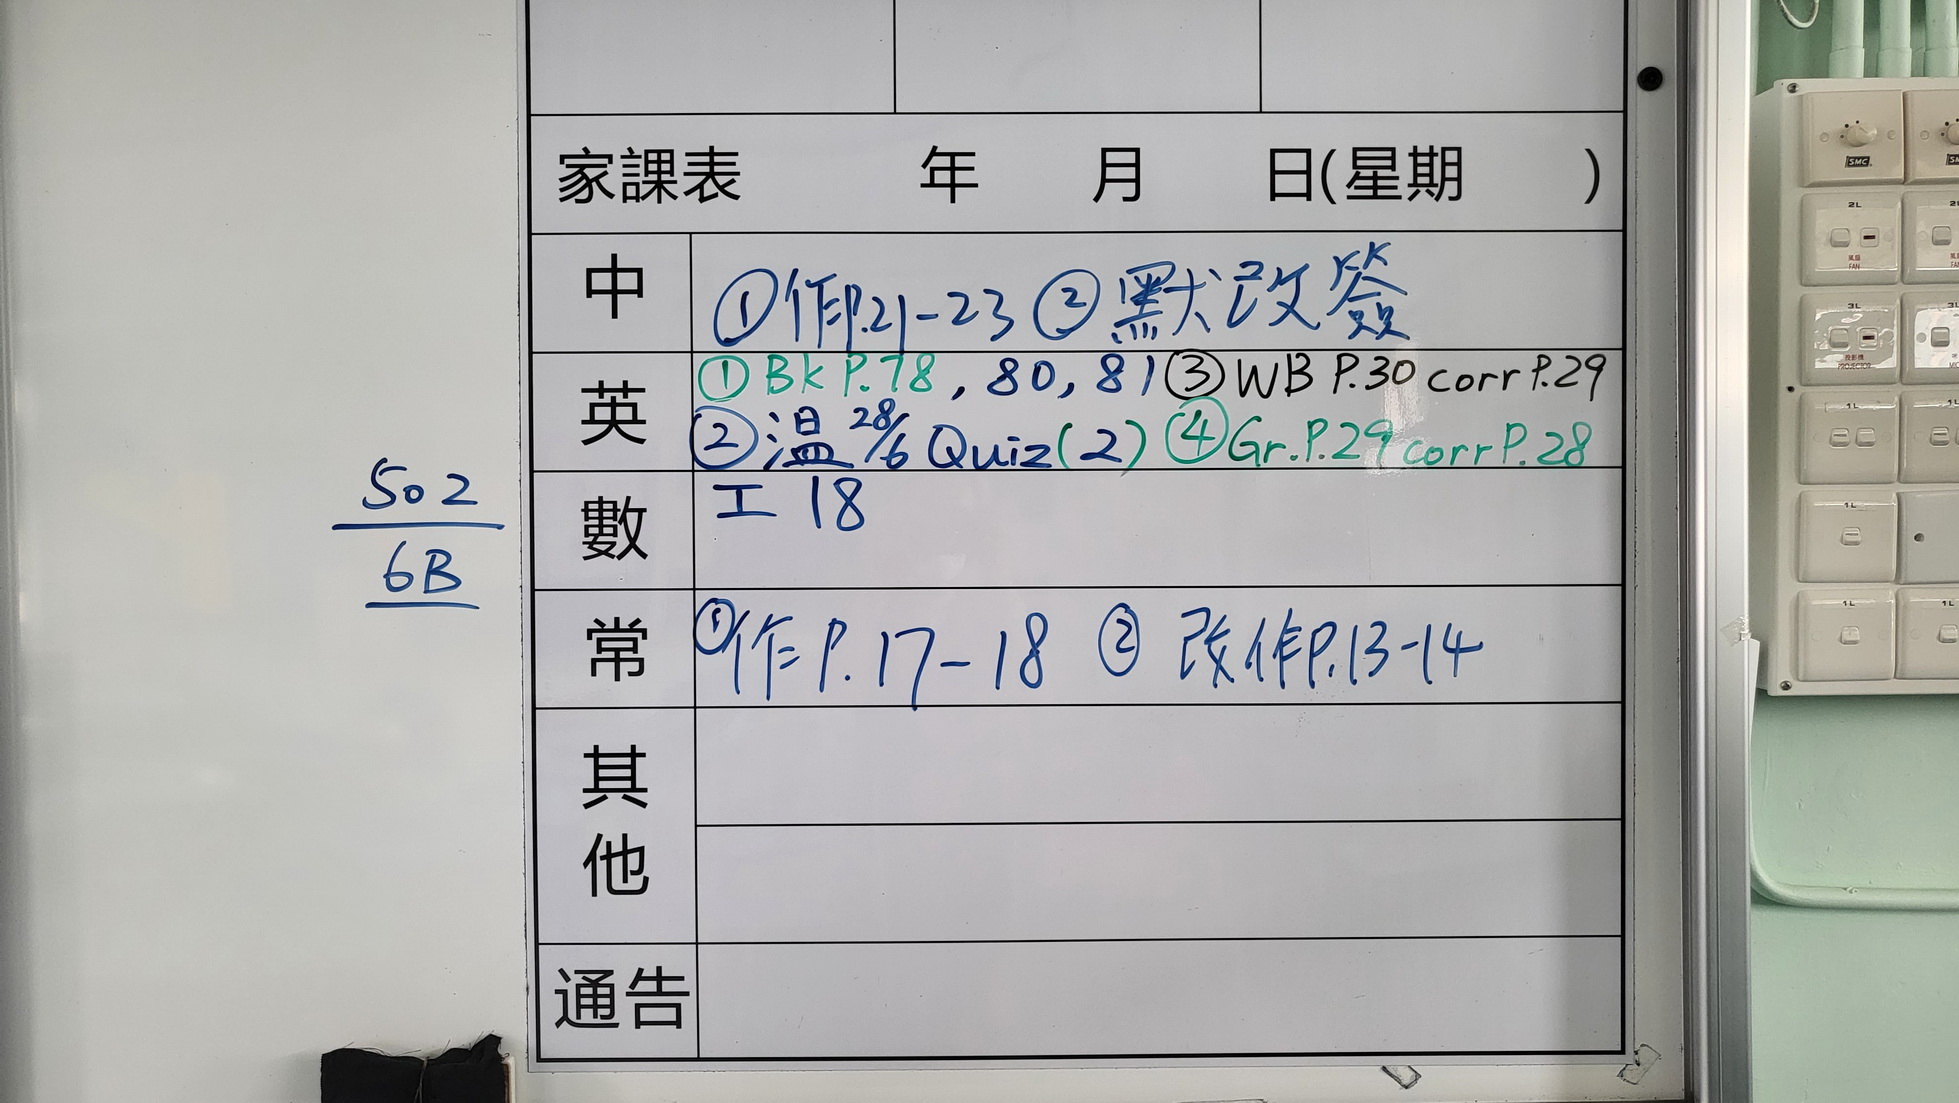 家課表 年 月 日(星期 )
中 ①作P.21-23 ②默改簽
英 ①Bk P.78, 80, 81 ③WB P.30 corr P.29
②温28/6 Quiz(2) ④Gr.P.29 corr P.28
數 工 18
常 ①作P.17-18 ② 改作P.13-14
其他
通告
502
6B
SMC
2L
風扇
FAN
3L
投影機
PROJECTOR
1L
1L
1L
1L
1L